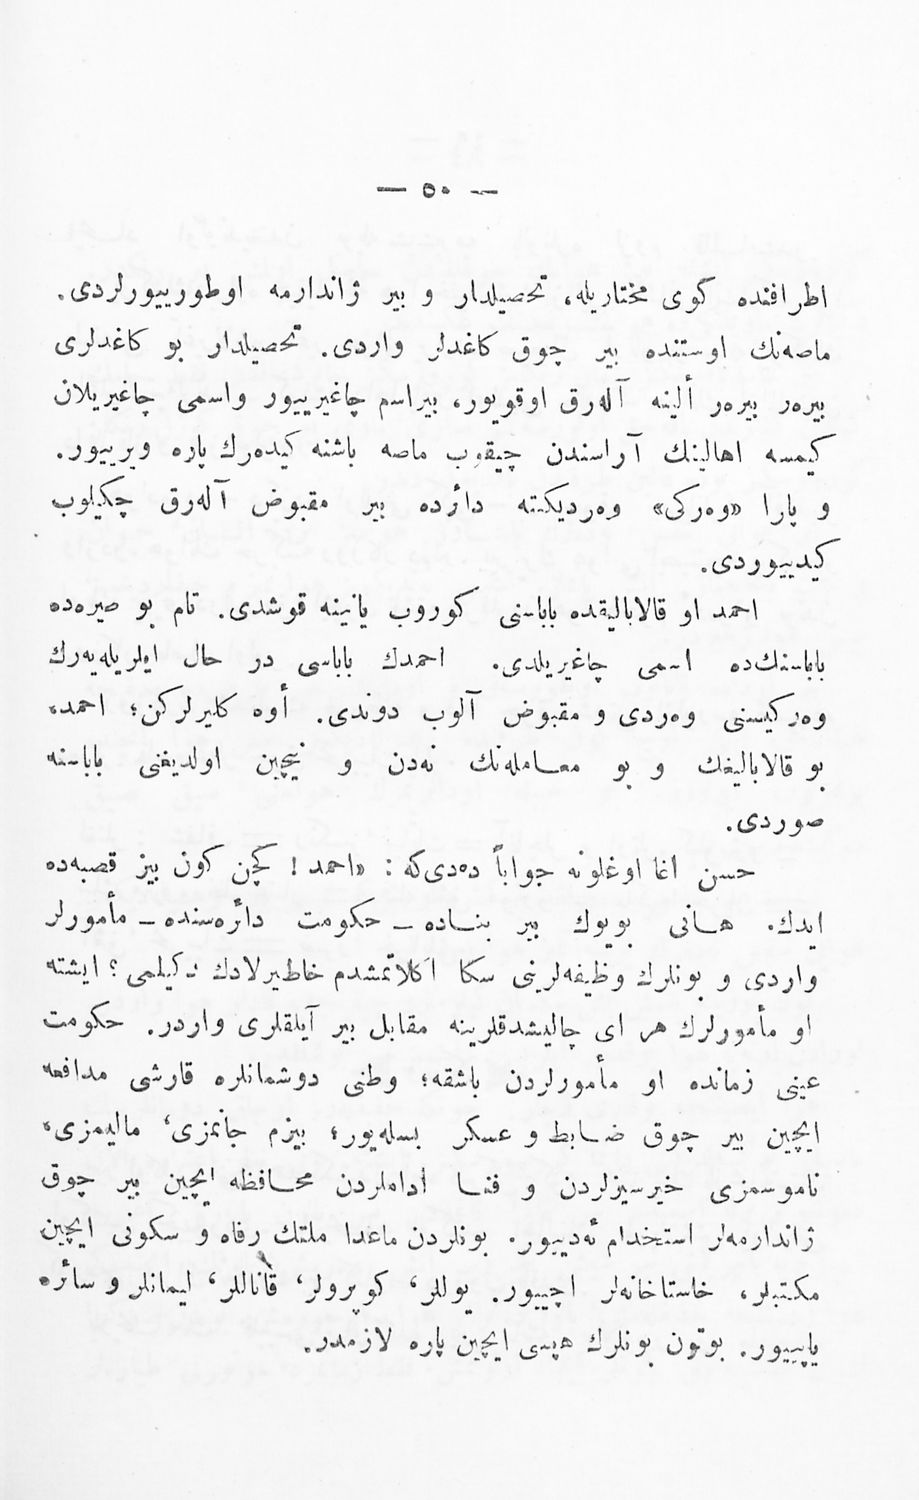 — ٥٠ —
اطرافنده كوی مختاریله، تحصیلدار و بیر ژاندارمه اوطورییورلردی.
ماصه‌نك اوستنده بیر چوق كاغدلر واردی. تحصیلدار بو كاغدلری
بیره‌ر بیره‌ر ألینه آله‌رق اوقویور، بیراسم چاغیرییور واسمی چاغیریلان
كیمسه اهالینك آراسندن چیقوب ماصه باشنه كیده‌رك پاره ویرییور.
و پارا «وه‌ركی» وه‌ردیكنه دائره بیر مقبوض آله‌رق چكیلوب
كیدییوردی.
احمد او قالابالیقده باباسنی كوروب یانینه قوشدی. تام بو صیره‌ده
باباسنك‌ده اسمی چاغیریلدی. احمدك باباسی در حال ایلریله‌یه‌رك
وه‌ركیسنی وه‌ردی و مقبوض آلوب دوندی. أوه كلیرلركن؛ احمد،
بو قالابالیغك و بو معامله‌نك نه‌دن و نیچین اولدیغنی باباسنه
صوردی.
حسن آغا اوغلونه جواباً ده‌دی‌كه: «احمد! كچن كون بیز قصبه‌ده
ایدك. هانی بویوك بیر بناده ـ حكومت دائره‌سنده ـ مأمورلر
واردی و بونلرك وظیفه‌لرینی سكا آكلاتمشدم خاطیرلادك دكیلمی؟ ایشته
او مأمورلرك هر آی چالیشدقلرینه مقابل بیر آیلقلری واردر. حكومت
عینی زمانده او مأمورلردن باشقه؛ وطنی دوشمانلره قارشی مدافعه
ایچین بیر چوق ضابط و عسكر بسله‌یور؛ بیزم جانمزی، مالیمزی،
ناموسمزی خیرسیزلردن و فنا أداملردن محافظه ایچین بیر چوق
ژاندارمه‌لر استخدام ئه‌دییور. بونلردن ماعدا ملتك رفاه و سكونی ایچین
مكتبلر، خاستاخانه‌لر آچییور. یوللر، كوپرولر، قاناللر، لیمانلر و سائره
یاپییور. بوتون بونلرك هپسی ایچین پاره لازمدر.